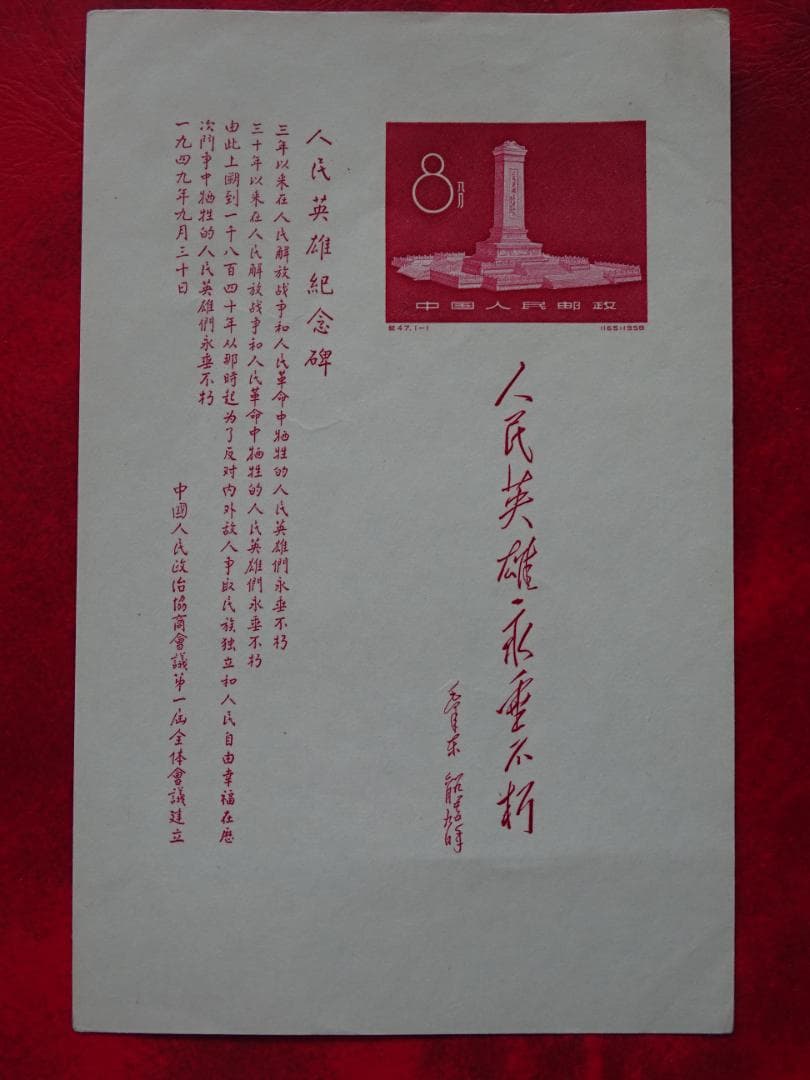 8分
中国人民邮政
紀47.(一)
(165)1958
人民英雄永垂不朽
毛泽东
人民英雄紀念碑
三年以来在人民解放战争和人民革命中牺牲的人民英雄們永垂不朽
三十年以来在人民解放战争和人民革命中牺牲的人民英雄們永垂不朽
由此上溯到一千八百四十年从那時起为了反对内外敌人争取民族独立和人民自由幸福在历
次鬥争中牺牲的人民英雄們永垂不朽
一九四九年九月三十日
中國人民政治協商會議第一届全体會議建立